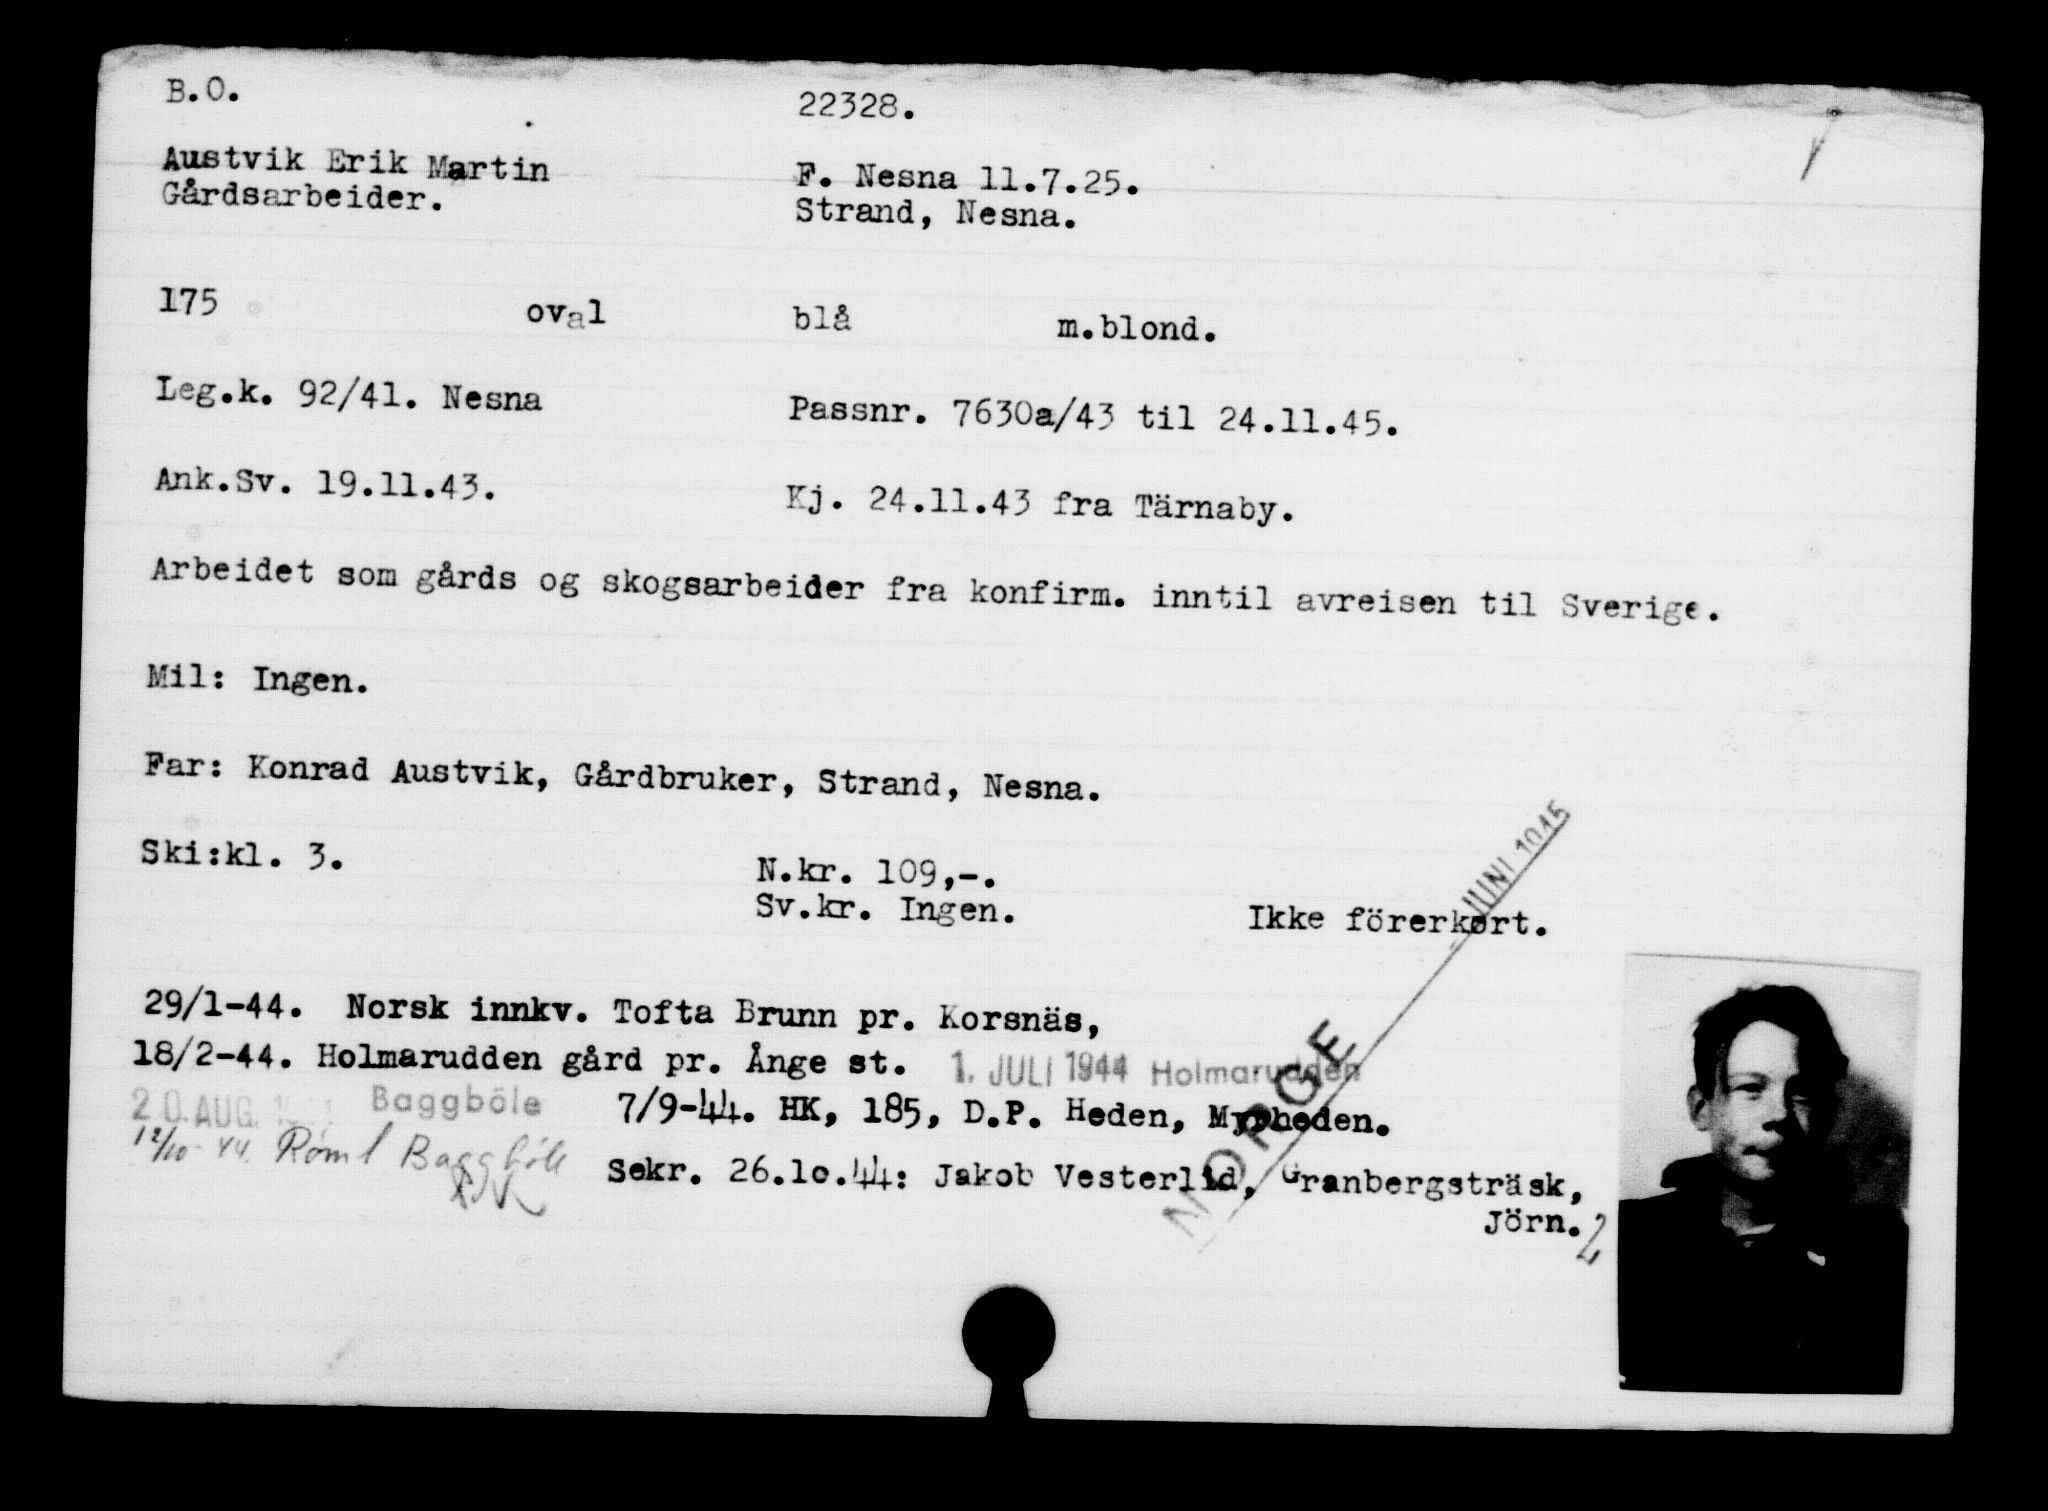 B.O.
22328.
Austvik Erik Martin
F. Nesna 11.7.25.
Gårdsarbeider.
Strand, Nesna.
175 oval blå m.blond.
Leg.k. 92/41. Nesna
Passnr. 7630a/43 til 24.11.45.
Ank.Sv. 19.11.43.
Kj. 24.11.43 fra Tärnaby.
Arbeidet som gårds og skogsarbeider fra konfirm. inntil avreisen til Sverige.
Mil: Ingen.
Far: Konrad Austvik, Gårdbruker, Strand, Nesna.
Ski:kl. 3.
N.kr. 109,-.
Sv.kr. Ingen.
Ikke förerkort.
JUNI 1945
NORGE
29/1-44. Norsk innkv. Tofta Brunn pr. Korsnäs,
18/2-44. Holmarudden gård pr. Ånge st.
1. JULI 1944 Holmarudden
20. AUG. Baggböle
7/9-44. HK, 185, D.P. Heden, Myrheden.
12/10-44. Rømt Baggböle
Sekr. 26.10.44: Jakob Vesterlid, Granbergsträsk,
Jörn. 2